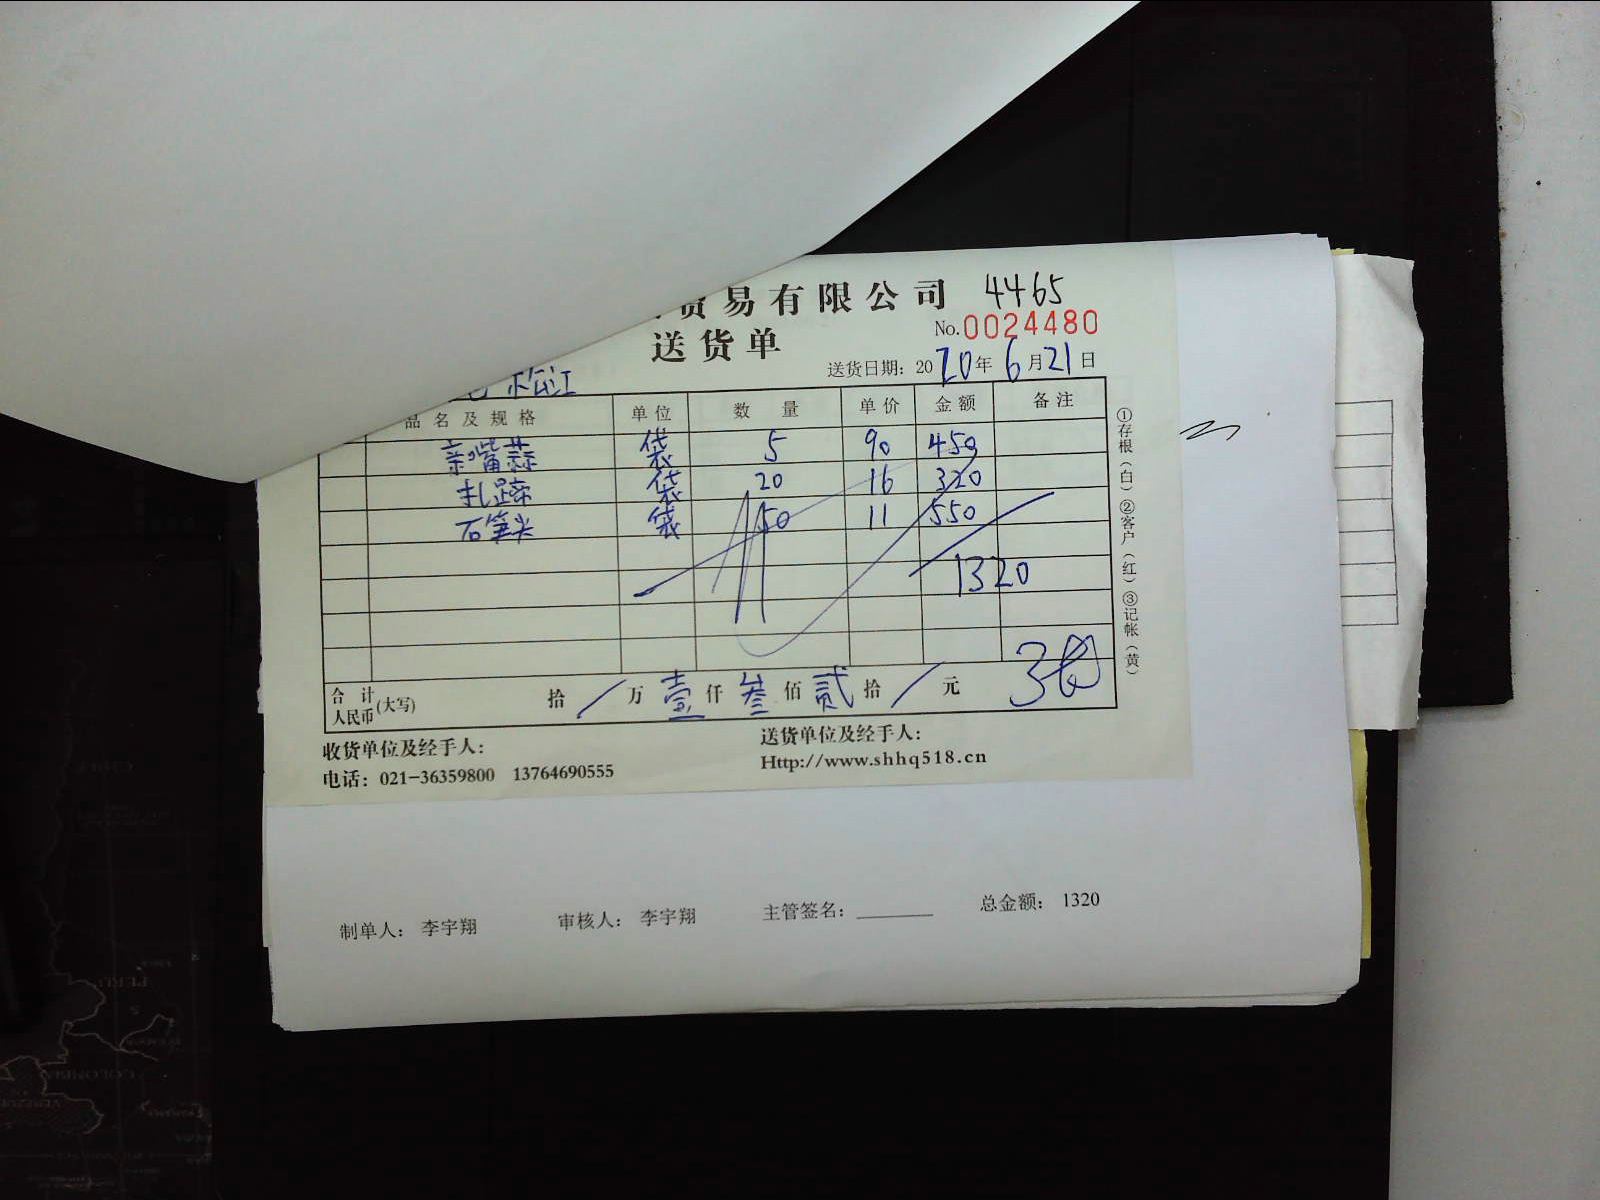 贸易有限公司 4465
送货单 No.0024480
送货日期: 2020年6月21日
松江
品名及规格 单位 数量 单价 金额 备注
亲嘴蒜 袋 5 90 450
扎蹄 袋 20 16 320
石笋尖 袋 50 11 550
1320
合计人民币(大写) 拾/万壹仟叁佰贰拾/元
①存根(白)②客户(红)③记帐(黄)
收货单位及经手人: 送货单位及经手人:
电话: 021-36359800 13764690555 Http://www.shhq518.cn
制单人: 李宇翔 审核人: 李宇翔 主管签名: ________ 总金额: 1320